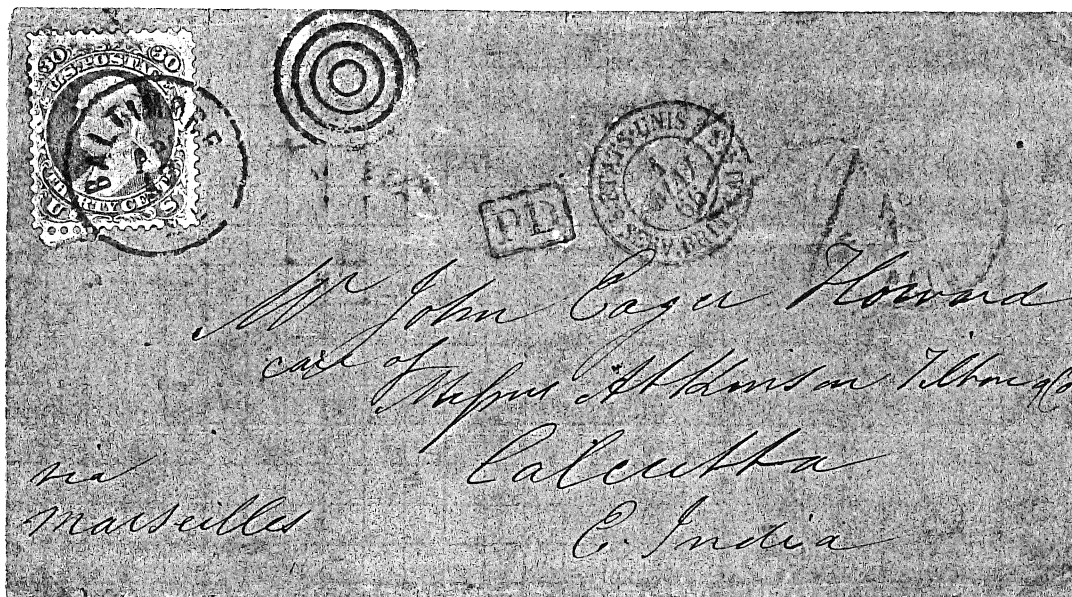 30 30
U.S. POSTAGE
THIRTY CENTS
U S
BALTIMORE
P.D.
ETATS-UNIS
Mr John Eager Howard
care of
Messrs Atkinson Tilton & Co
Calcutta
E. India
via
Marseilles